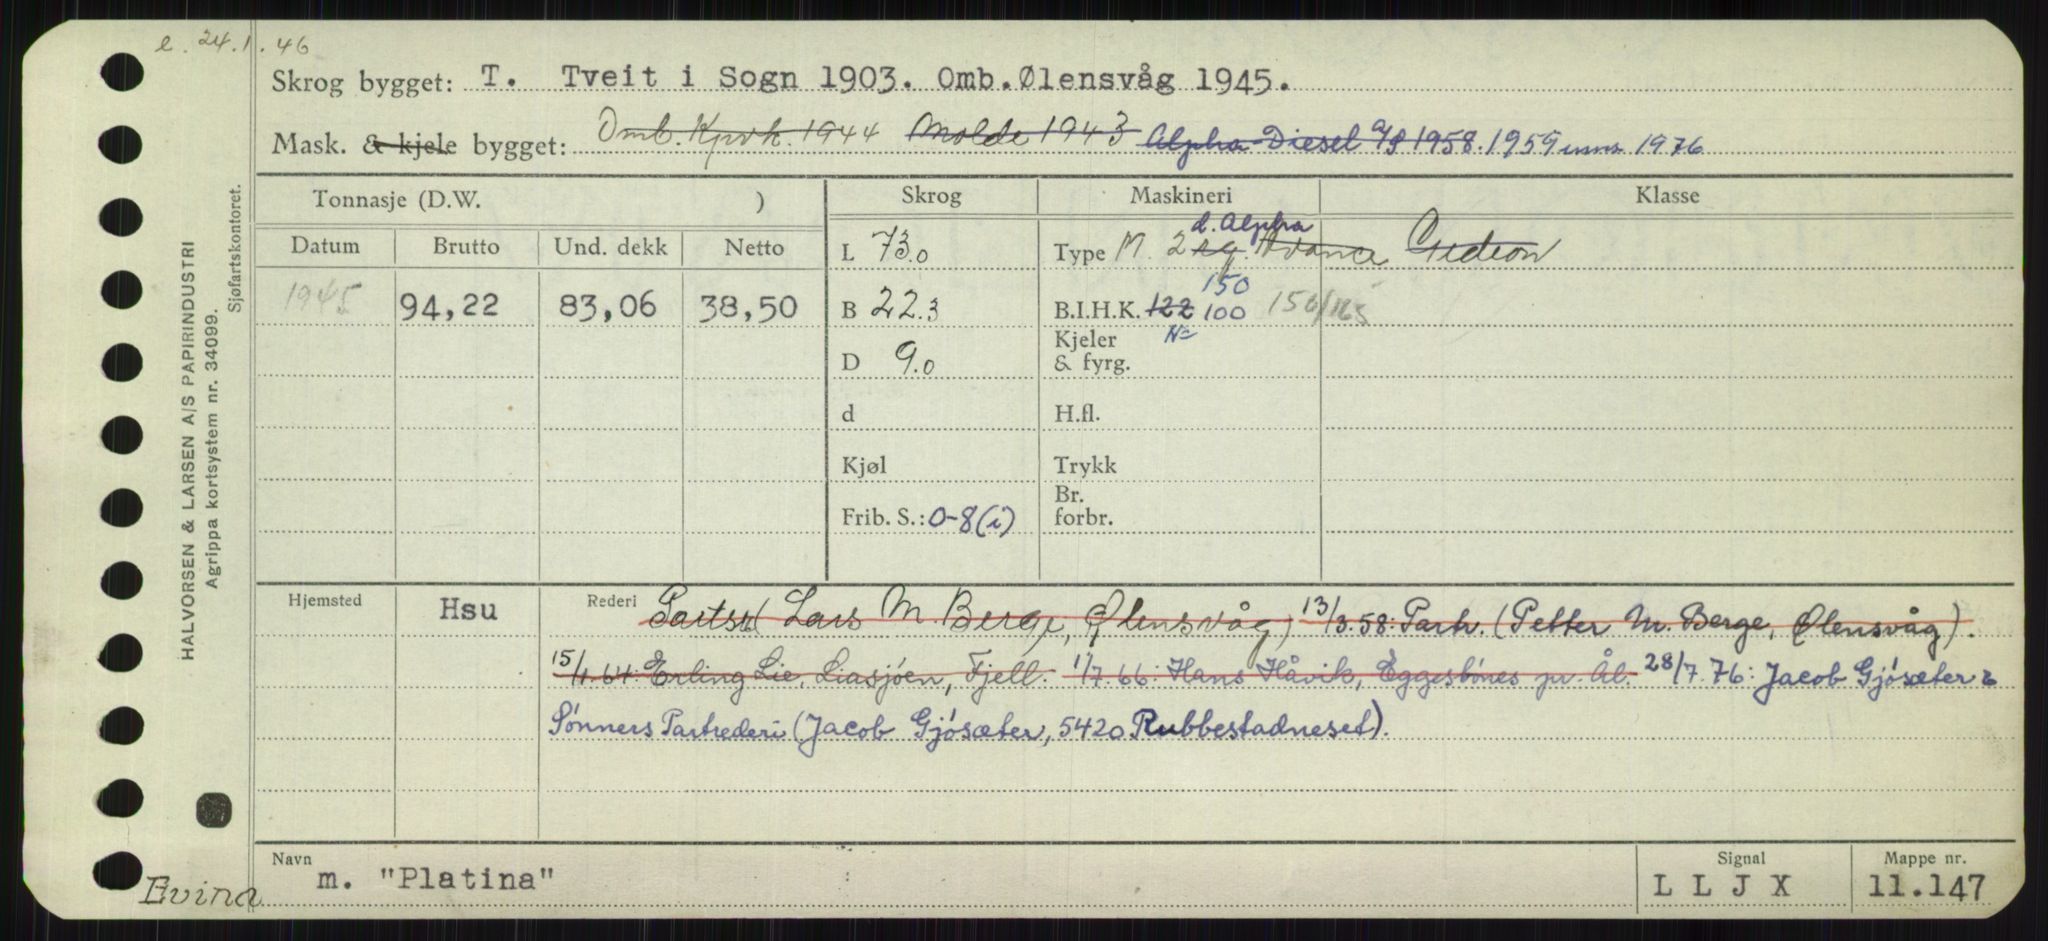 e. 24.1.46
Skrog bygget: T. Tveit i Sogn 1903. Omb.Ølensvåg 1945.
Mask. & kjele bygget: Omb. Kpvk. 1944 Molde 1943 Alpha-Diesel A/S 1958. 1959 1976
Tonnasje (D.W. ) Skrog Maskineri Klasse
Datum Brutto Und. dekk Netto L 73.0 Type M. 2 d. Alpha
1945 94,22 83,06 38,50 B 22.3 B.I.H.K. 122 100 150 150/165
D 9.0 Kjeler & fyrg.
d H.fl.
Kjøl Trykk
Frib. S.: 0-8(i) Br. forbr.
Hjemsted Hsu Rederi Partsr( Lars M. Berge, Ølensvåg) 13/3.58: Partr. (Petter M. Berge, Ølensvåg).
15/1.64: Erling Lie, Liasjøen, Fjell. 1/7.66: Hans Håvik, Eggesbönes pr. Ål. 28/7.76: Jacob Gjøsæter &
Sønners Partrederi (Jacob Gjøsæter, 5420 Rubbestadneset).
Navn m. "Platina" Signal L L J X Mappe nr. 11.147
Evina
HALVORSEN & LARSEN A/S PAPIRINDUSTRI
Agrippa kortsystem nr. 34099.
Sjøfartskontoret.